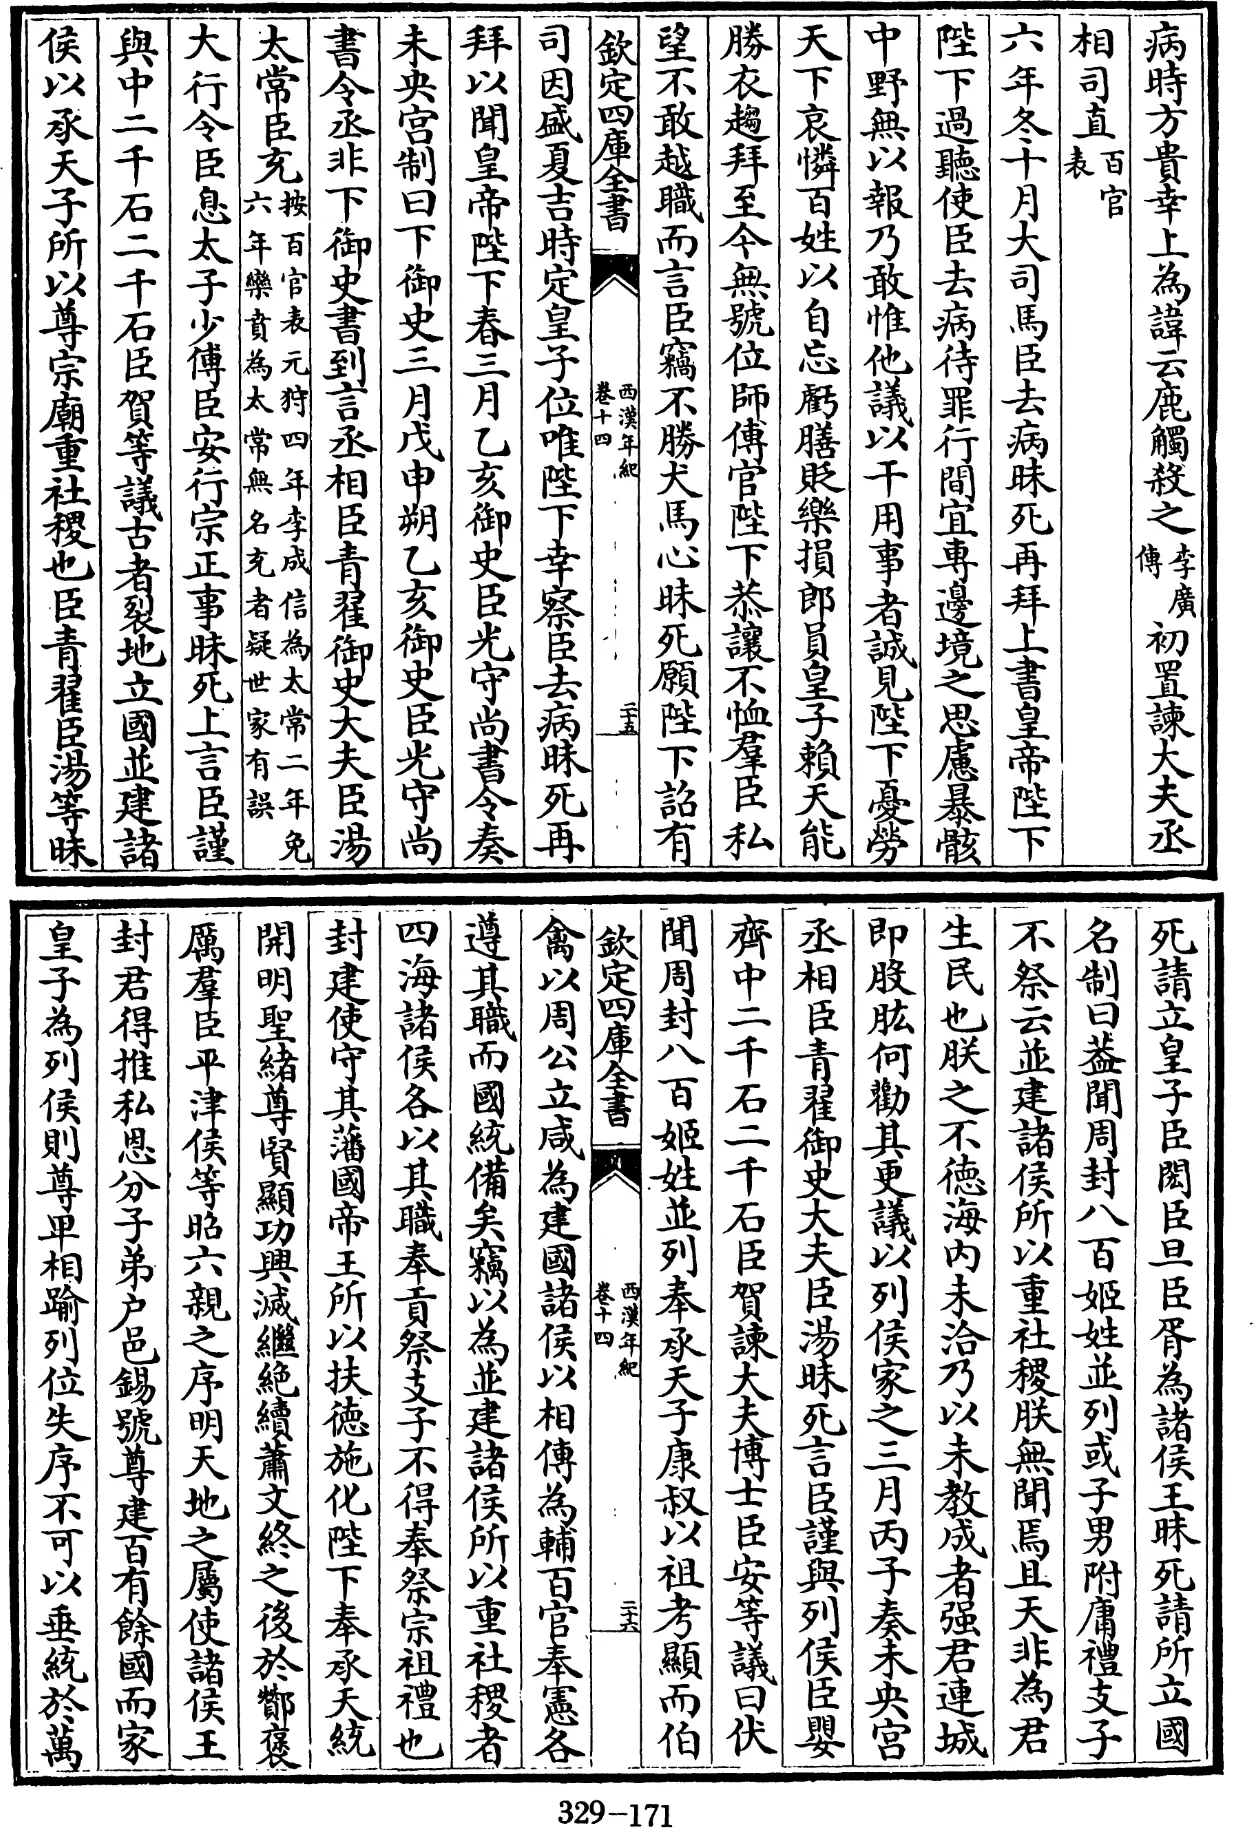 病時方貴幸上為諱云鹿觸殺之李廣傳初置諫大夫丞
相司直百官表
六年冬十月大司馬臣去病昧死再拜上書皇帝陛下
陛下過聽使臣去病待罪行間宜專邊境之思慮暴骸
中野無以報乃敢惟他議以干用事者誠見陛下憂勞
天下哀憐百姓以自忘虧膳貶樂損郎員皇子賴天能
勝衣趨拜至今無號位師傅官陛下恭讓不恤羣臣私
望不敢越職而言臣竊不勝犬馬心昧死願陛下詔有
欽定四庫全書
西漢年紀
卷十四
二十五
司因盛夏吉時定皇子位唯陛下幸察臣去病昧死再
拜以聞皇帝陛下春三月乙亥御史臣光守尚書令奏
未央宮制曰下御史三月戊申朔乙亥御史臣光守尚
書令丞非下御史書到言丞相臣青翟御史大夫臣湯
太常臣充按百官表元狩四年李成信為太常二年免六年欒賁為太常無名充者疑世家有誤
大行令臣息太子少傅臣安行宗正事昧死上言臣謹
與中二千石二千石臣賀等議古者裂地立國並建諸
侯以承天子所以尊宗廟重社稷也臣青翟臣湯等昧
死請立皇子臣閎臣旦臣胥為諸侯王昧死請所立國
名制曰葢聞周封八百姬姓並列或子男附庸禮支子
不祭云並建諸侯所以重社稷朕無聞焉且天非為君
生民也朕之不徳海内未洽乃以未教成者强君連城
即股肱何勸其更議以列侯家之三月丙子奏未央宮
丞相臣青翟御史大夫臣湯昧死言臣謹與列侯臣嬰
齊中二千石二千石臣賀諫大夫博士臣安等議曰伏
聞周封八百姬姓並列奉承天子康叔以祖考顯而伯
欽定四庫全書
西漢年紀
卷十四
二十六
禽以周公立咸為建國諸侯以相傅為輔百官奉憲各
遵其職而國統備矣竊以為並建諸侯所以重社稷者
四海諸侯各以其職奉貢祭支子不得奉祭宗祖禮也
封建使守其藩國帝王所以扶徳施化陛下奉承天統
開明聖緒尊賢顯功興滅繼絶續蕭文終之後於酇褒
厲羣臣平津侯等昭六親之序明天地之屬使諸侯王
封君得推私恩分子弟户邑錫號尊建百有餘國而家
皇子為列侯則尊卑相踰列位失序不可以垂統於萬
329-171